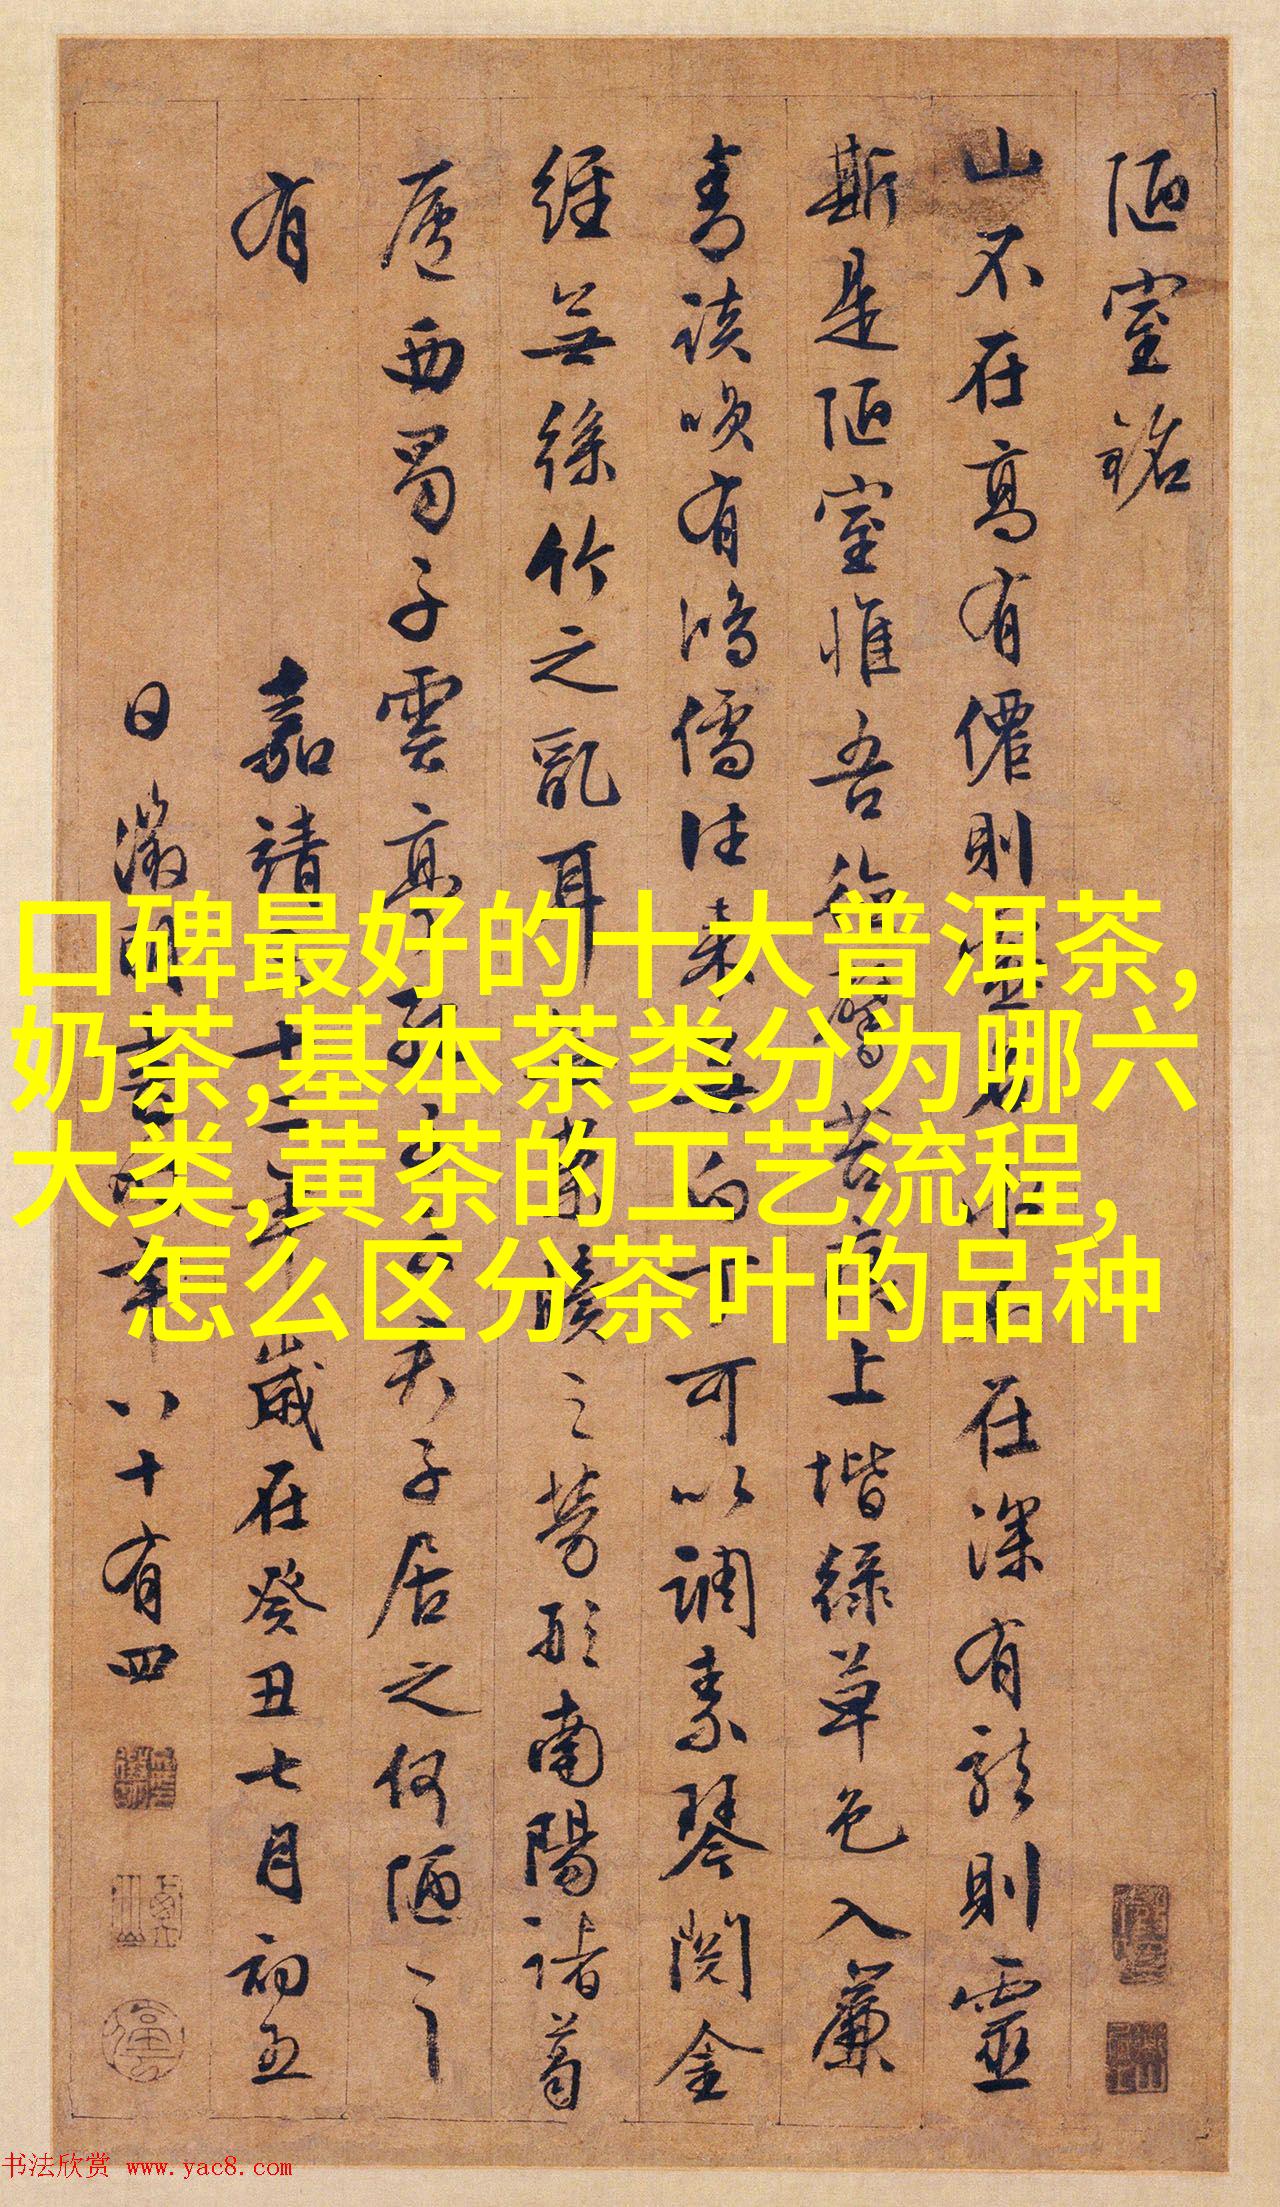 陋室銘
山不在高有僊則在深有龍則靈
斯是陋室惟吾德馨苔痕上堦綠草色入簾
青談咲有鴻儒往來無白丁可以調素琴閱金
經無絲竹之亂耳無案牘之勞形南陽諸葛
廬西蜀子雲亭子居之何陋之
有
嘉靖三十二年歲在癸丑七月初五
日徵明書時年八十有四
口碑最好的十大普洱茶,
奶茶,基本茶类分为哪六
大类,黄茶的工艺流程,
怎么区分茶叶的品种
书法欣赏 www.yac8.com